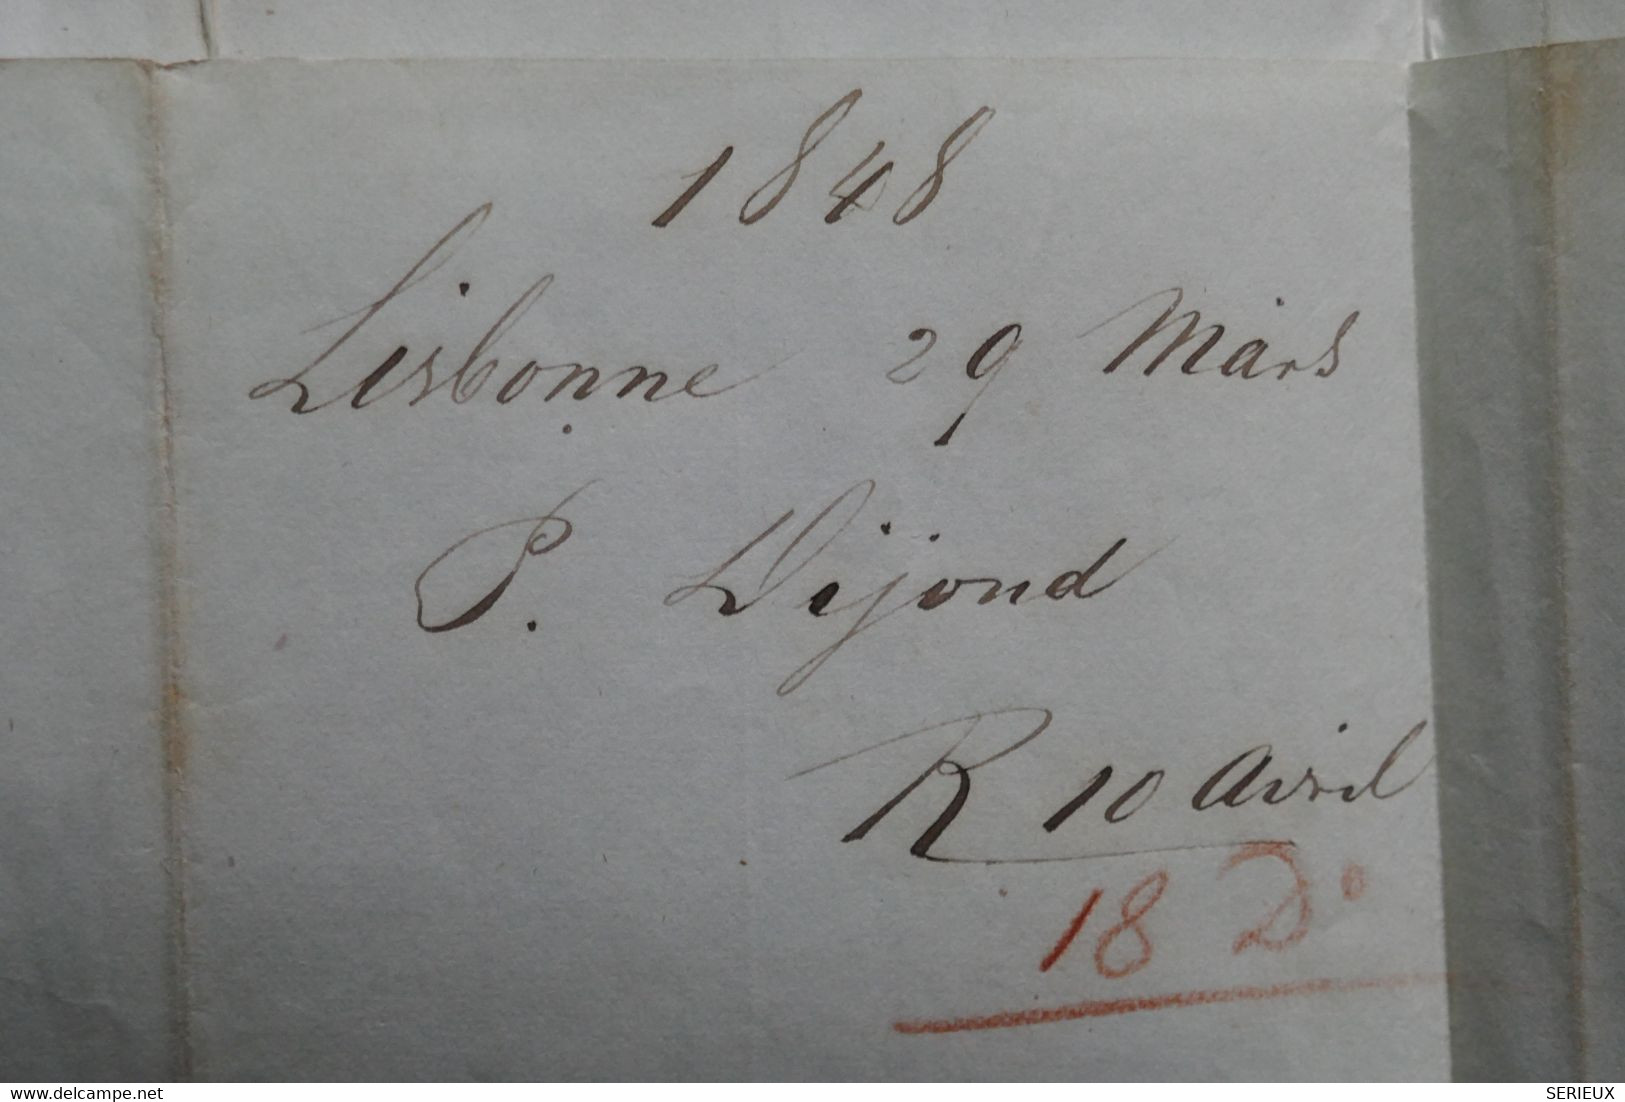 1848
Lisbonne 29 Mars
P. Dijond
R 10 Avril
18 Do
www.delcampe.net
SERIEUX